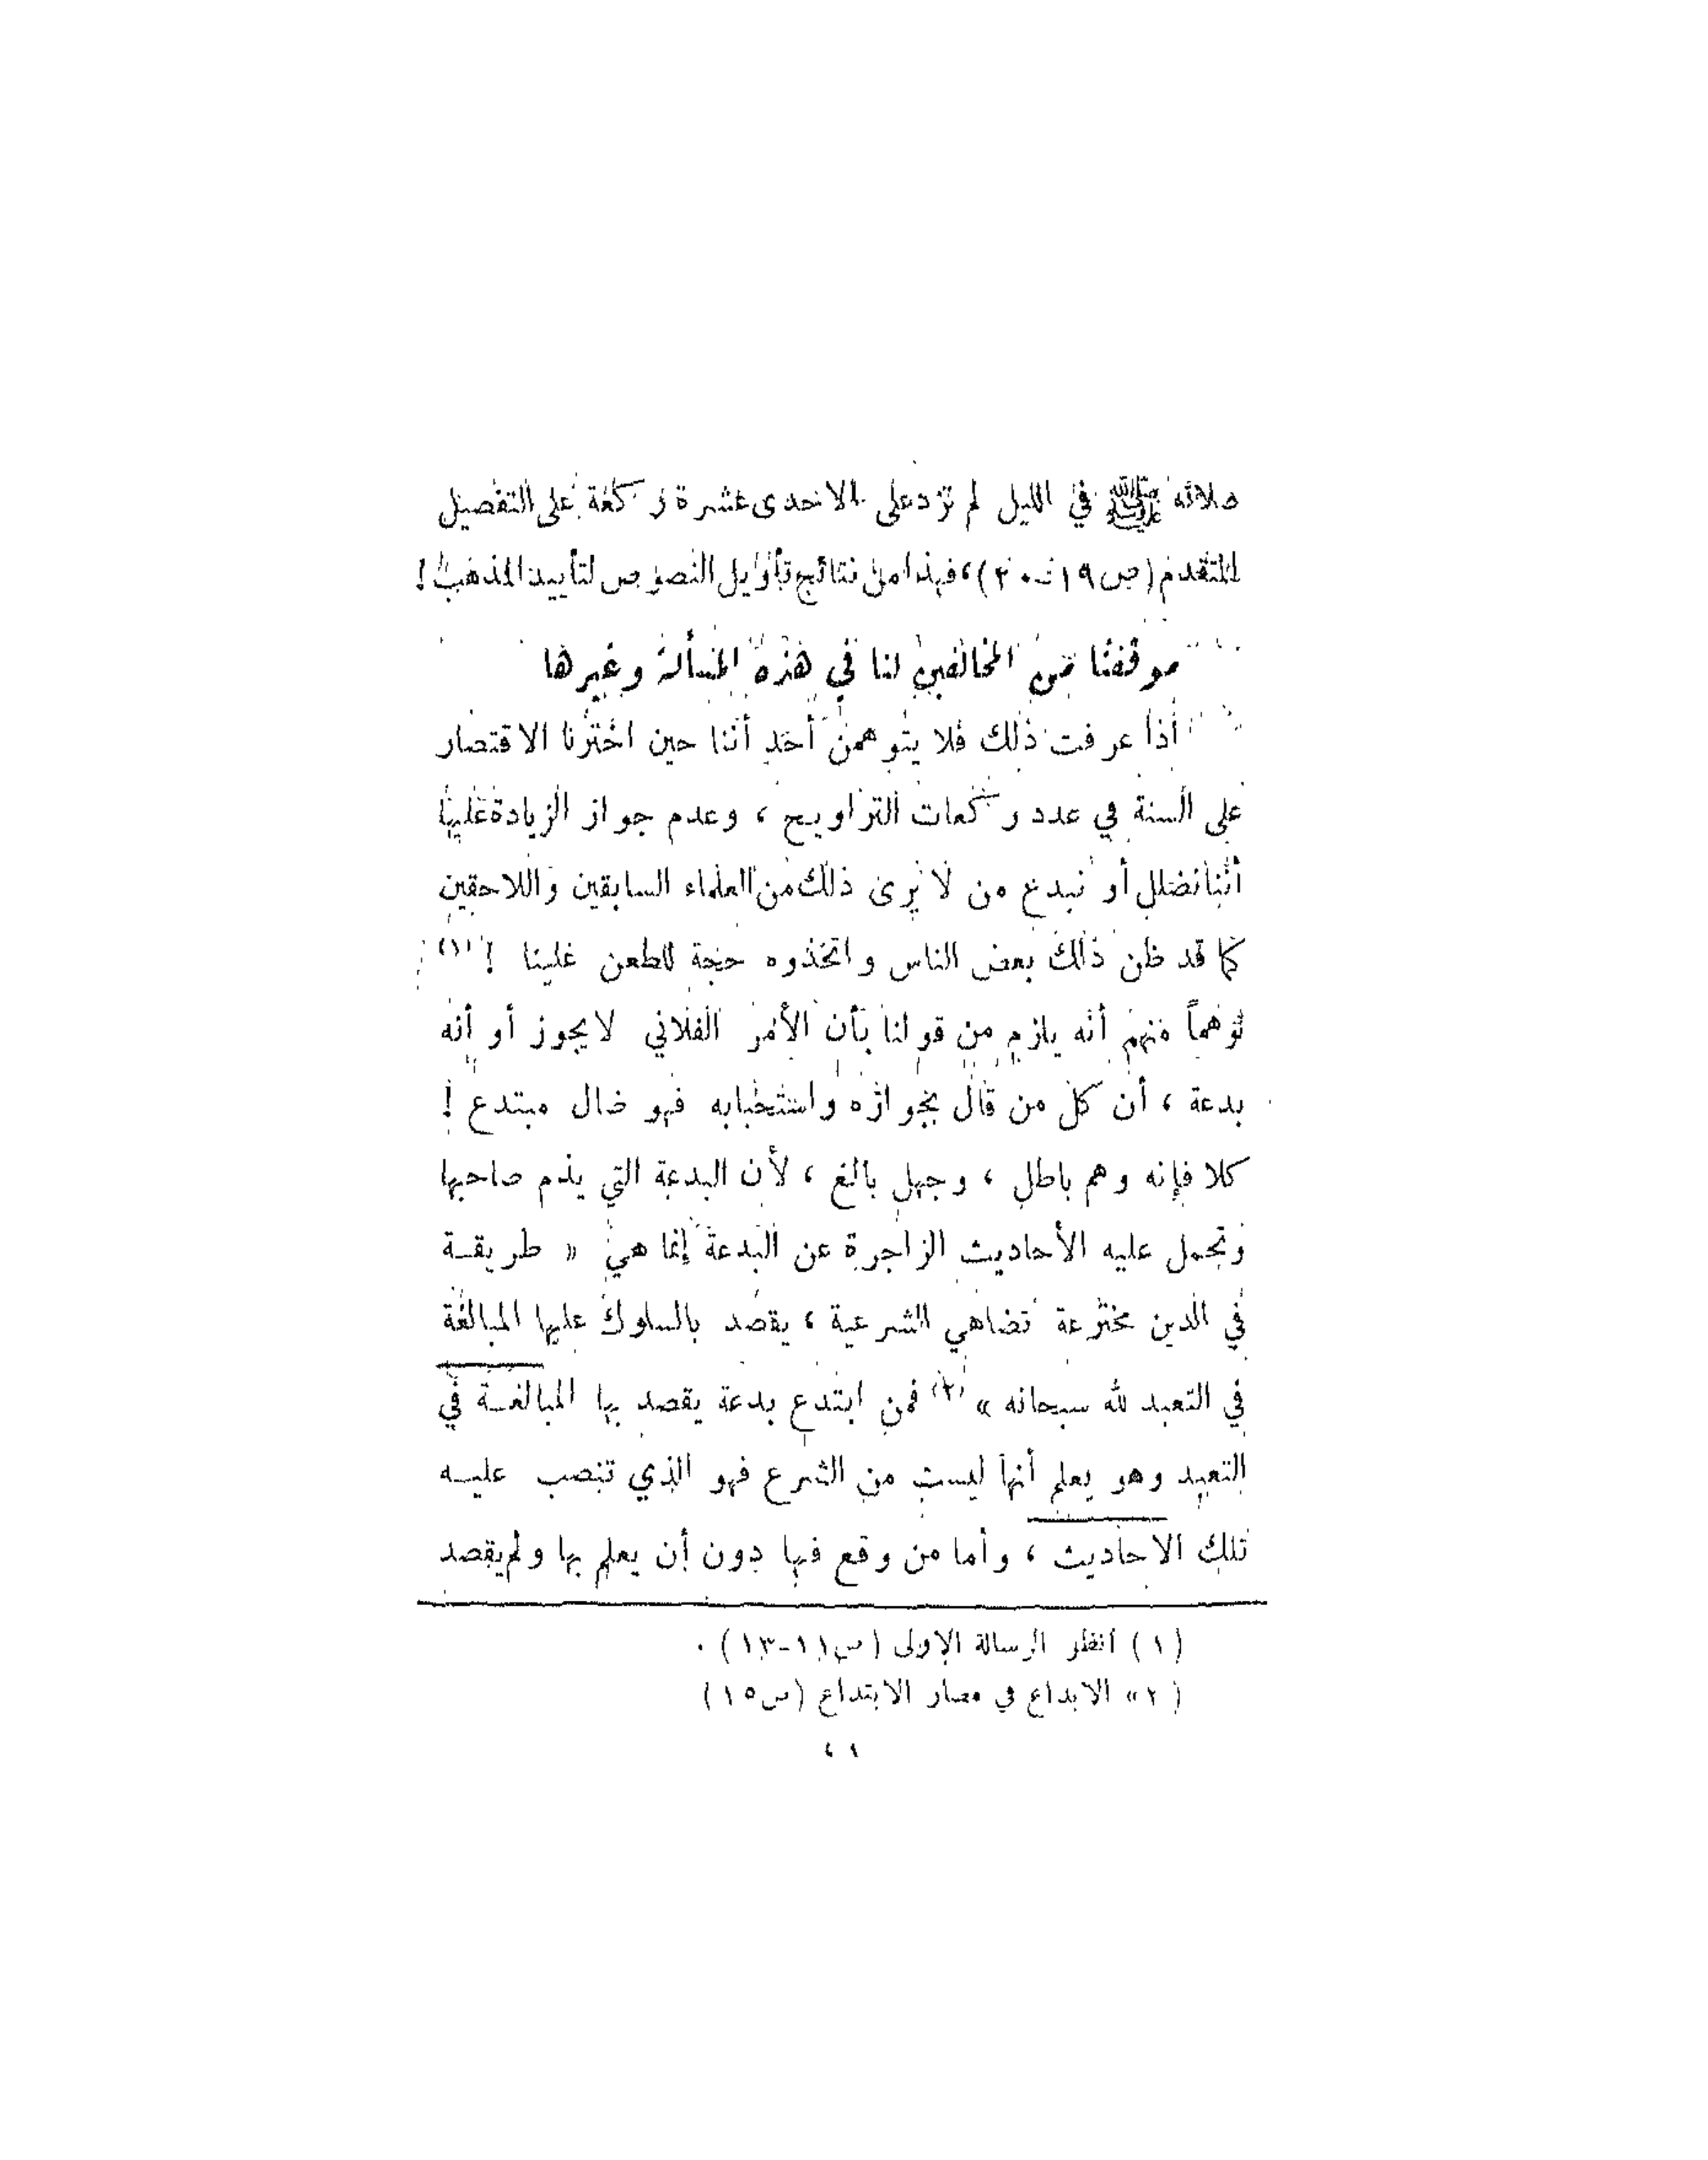 صلاته ﷺ في الليل لم تزد على الاحدى عشرة ركعة على التفصيل
المتقدم (ص ١٩ - ٢٠)، فهذا من نتائج تأويل النصوص لتأييد المذهب !
موقفنا من المخالفين لنا في هذه المسألة وغيرها
أذا عرفت ذلك فلا يتوهمن أحد أننا حين اخترنا الاقتصار
على السنة في عدد ركعات التراويح ، وعدم جواز الزيادة عليها
أننا نضلل أو نبدع من لا يرى ذلك من العلماء السابقين واللاحقين
كما قد ظن ذلك بعض الناس واتخذوه حجة للطعن علينا ! (١)
توهماً منهم أنه يلزم من قولنا بأن الأمر الفلاني لايجوز أو أنه
بدعة ، أن كل من قال بجوازه واستحبابه فهو ضال مبتدع !
كلا فإنه وهم باطل ، وجهل بالغ ، لأن البدعة التي يذم صاحبها
وتحمل عليه الأحاديث الزاجرة عن البدعة إنما هي « طريقة
في الدين مخترعة تضاهي الشرعية ، يقصد بالسلوك عليها المبالغة
في التعبد لله سبحانه » (٢) فمن ابتدع بدعة يقصد بها المبالغة في
التعبد وهو يعلم أنها ليست من الشرع فهو الذي تنصب عليه
تلك الاحاديث ، وأما من وقع فيها دون أن يعلم بها ولم يقصد
(١) انظر الرسالة الاولى (ص ١١-١٣) .
(٢» الابداع في مضار الابتداع (ص ١٥)